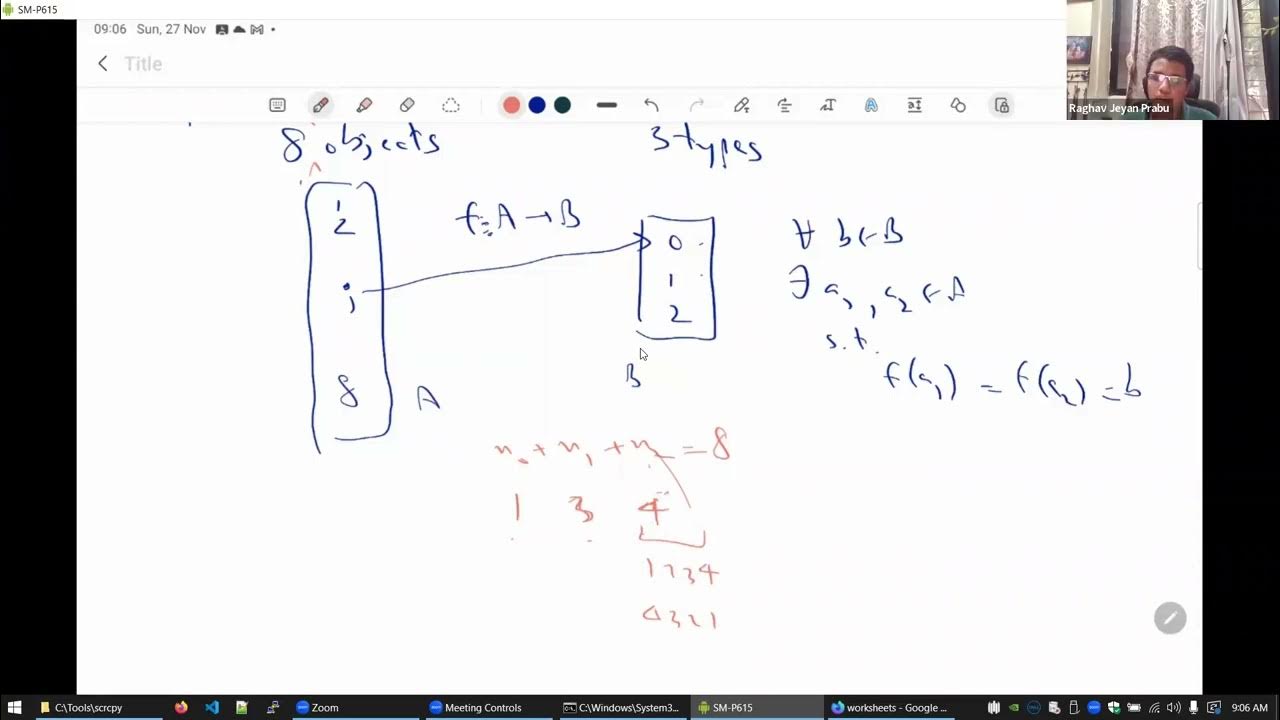 SM-P615
09:06 Sun, 27 Nov
Title
Raghav Jeyan Prabu
8 objects
3 types
1
2
:
8
A
f: A → B
0
1
2
B
∀ b ∈ B
∃ a₁, a₂ ∈ A
s.t.
f(a₁) = f(a₂) = b
n₀ + n₁ + n₂ = 8
1 3 4
1234
4321
C:\Tools\scrcpy
Zoom
Meeting Controls
C:\Windows\System3...
SM-P615
worksheets - Google ...
9:06 AM